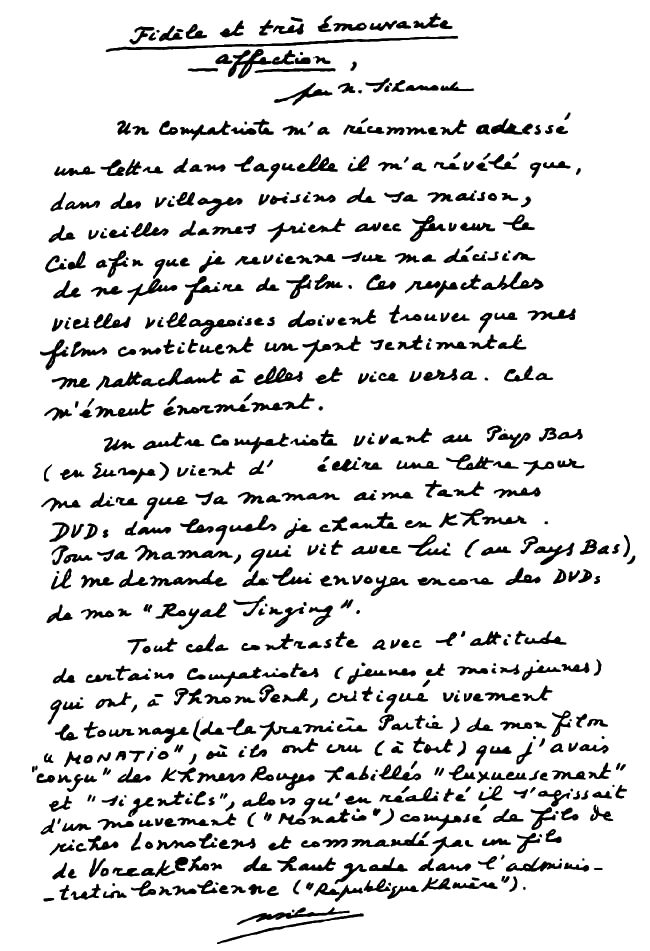 Fidèle et très émouvante
affection,
par N. Sihanouk
Un Compatriote m'a récemment adressé
une lettre dans laquelle il m'a révélé que,
dans des villages voisins de sa maison,
de vieilles dames prient avec ferveur le
Ciel afin que je revienne sur ma décision
de ne plus faire de film. Ces respectables
vieilles villageoises doivent trouver que mes
films constituent un pont sentimental
me rattachant à elles et vice versa. Cela
m'émeut énormément.
Un autre Compatriote vivant au Pays Bas
(en Europe) vient d' écrire une lettre pour
me dire que sa maman aime tant mes
DVDs dans lesquels je chante en Khmer.
Pour sa Maman, qui vit avec lui (au Pays Bas),
il me demande de lui envoyer encore des DVDs
de mon "Royal Singing".
Tout cela contraste avec l'attitude
de certains Compatriotes (jeunes et moins jeunes)
qui ont, à Phnom Penh, critiqué vivement
le tournage (de la première Partie) de mon film
"MONATIO", où ils ont cru (à tort) que j'avais
"conçu" des Khmers Rouges habillés "luxueusement"
et "si gentils", alors qu'en réalité il s'agissait
d'un mouvement ("Monatio") composé de fils de
riches Lonnoliens et commandé par un fils
de Voreakchon de haut grade dans l'adminis-
-tration lonnolienne ("République Khmère").